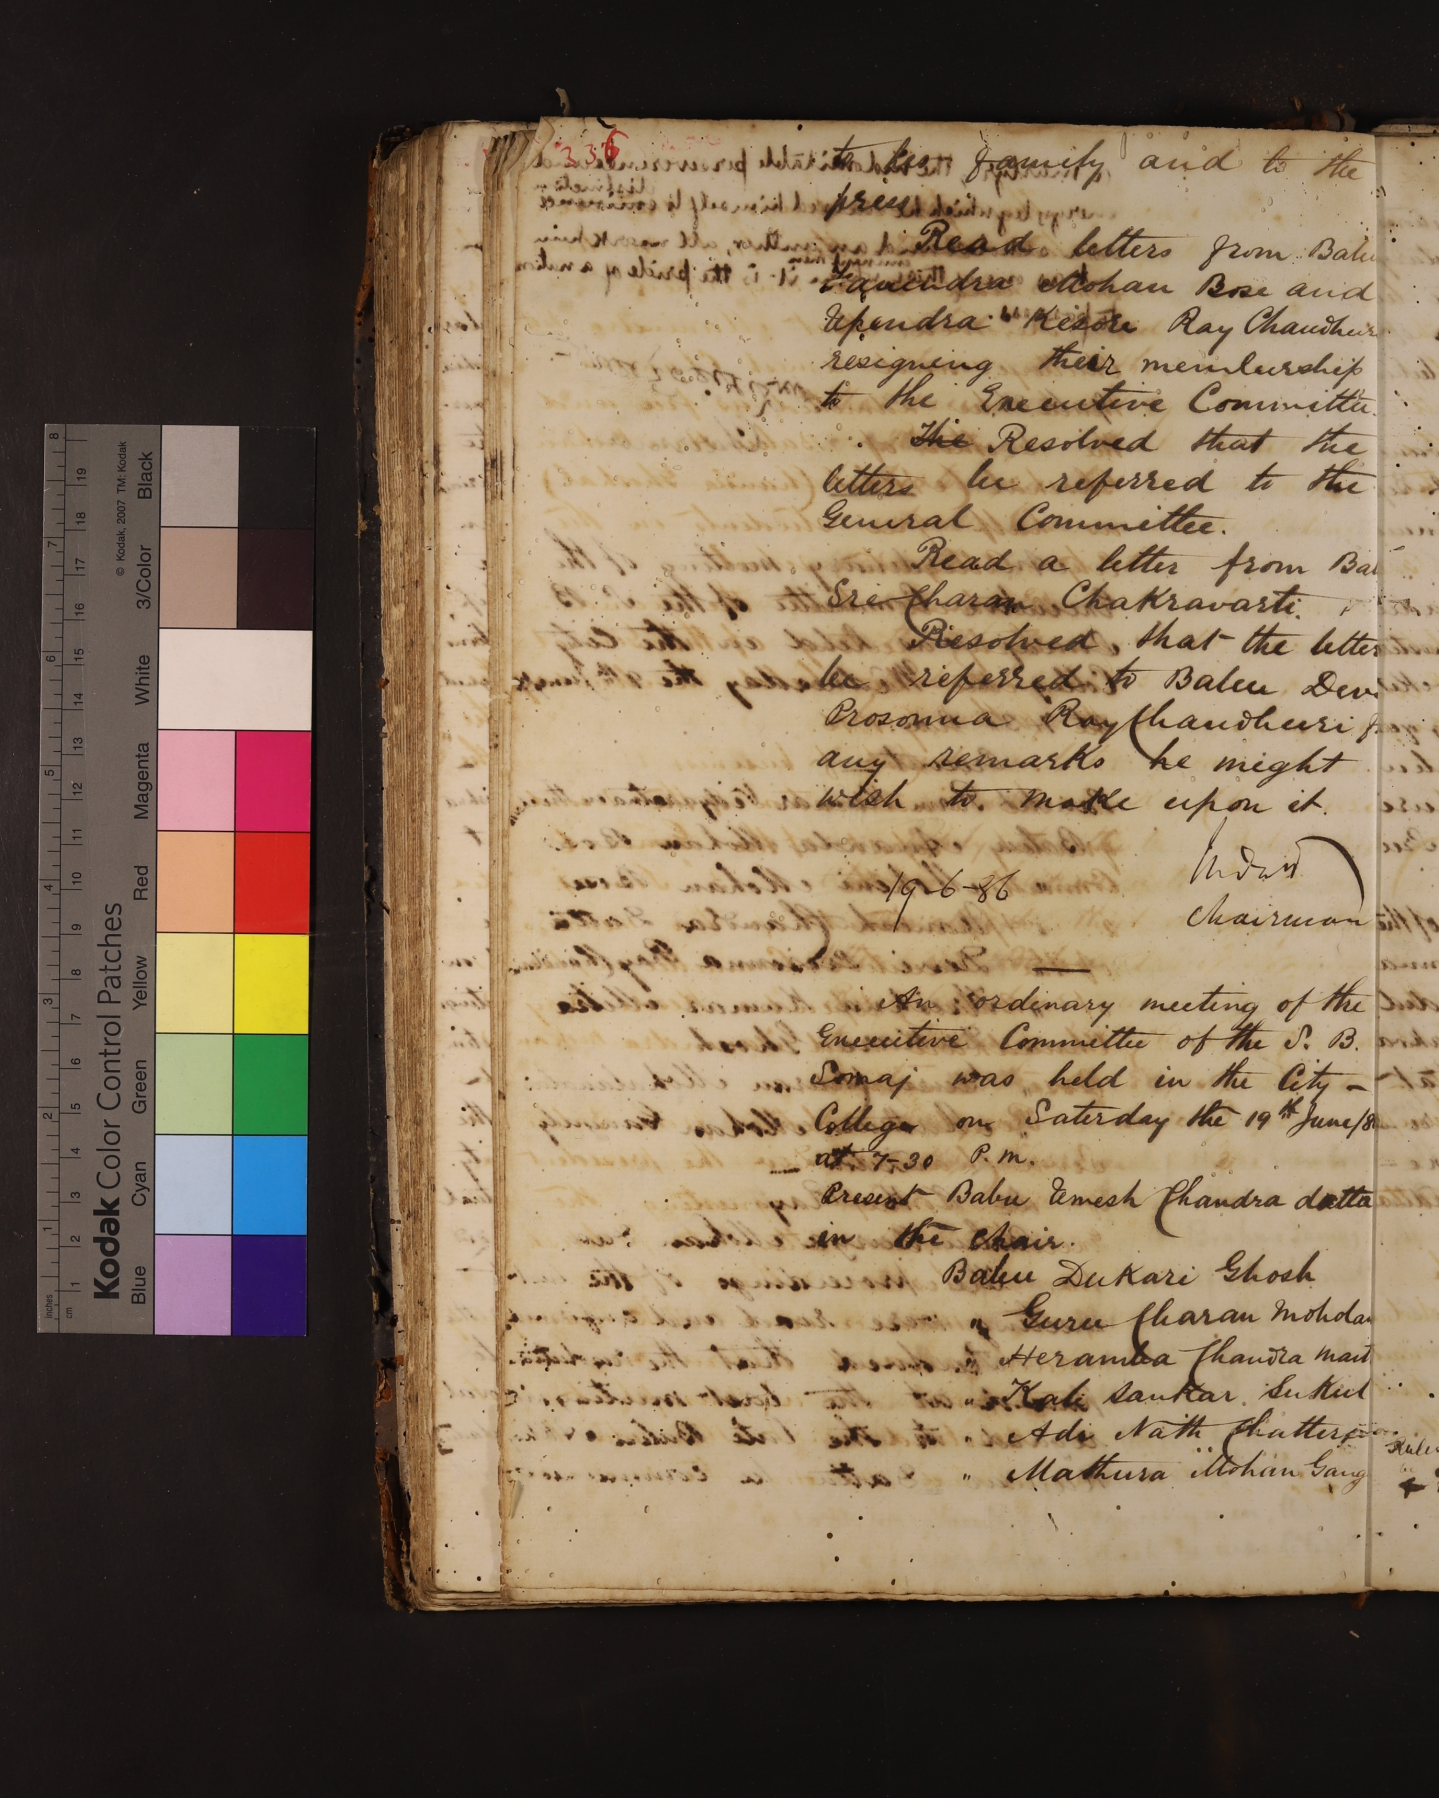 336
to his family and to the
press.
Read letters from Babu
Mohan Bose and
Upendra Kesore Ray Chaudhur
resigning their membership
to the Executive Committee.
The Resolved that the
letters be referred to the
General Committee.
Read a letter from Bab
Sri Charan Chakravarti.
Resolved that the letter
be referred to Babu Devi
Prosonna Ray Chaudhuri f
any remarks he might
wish to make upon it.
19-6-86
Chairman
An ordinary meeting of the
Executive Committee of the S. B.
Somaj was held in the City -
College on Saturday the 19th June/8
at 7-30 P.M.
Present Babu Umesh Chandra datta
in the chair.
Babu Dukari Ghosh
" Guru Charan Moholan
" Heramba Chandra Mait
" Kali Sankar Sukul
" Adi Nath Chatterj
" Mathura Mohan Gang
Kodak Color Control Patches
© Kodak, 2007 TM: Kodak
Blue
Cyan
Green
Yellow
Red
Magenta
White
3/Color
Black
inches
1
2
3
4
5
6
7
8
cm
1
2
3
4
5
6
7
8
9
10
11
12
13
14
15
16
17
18
19